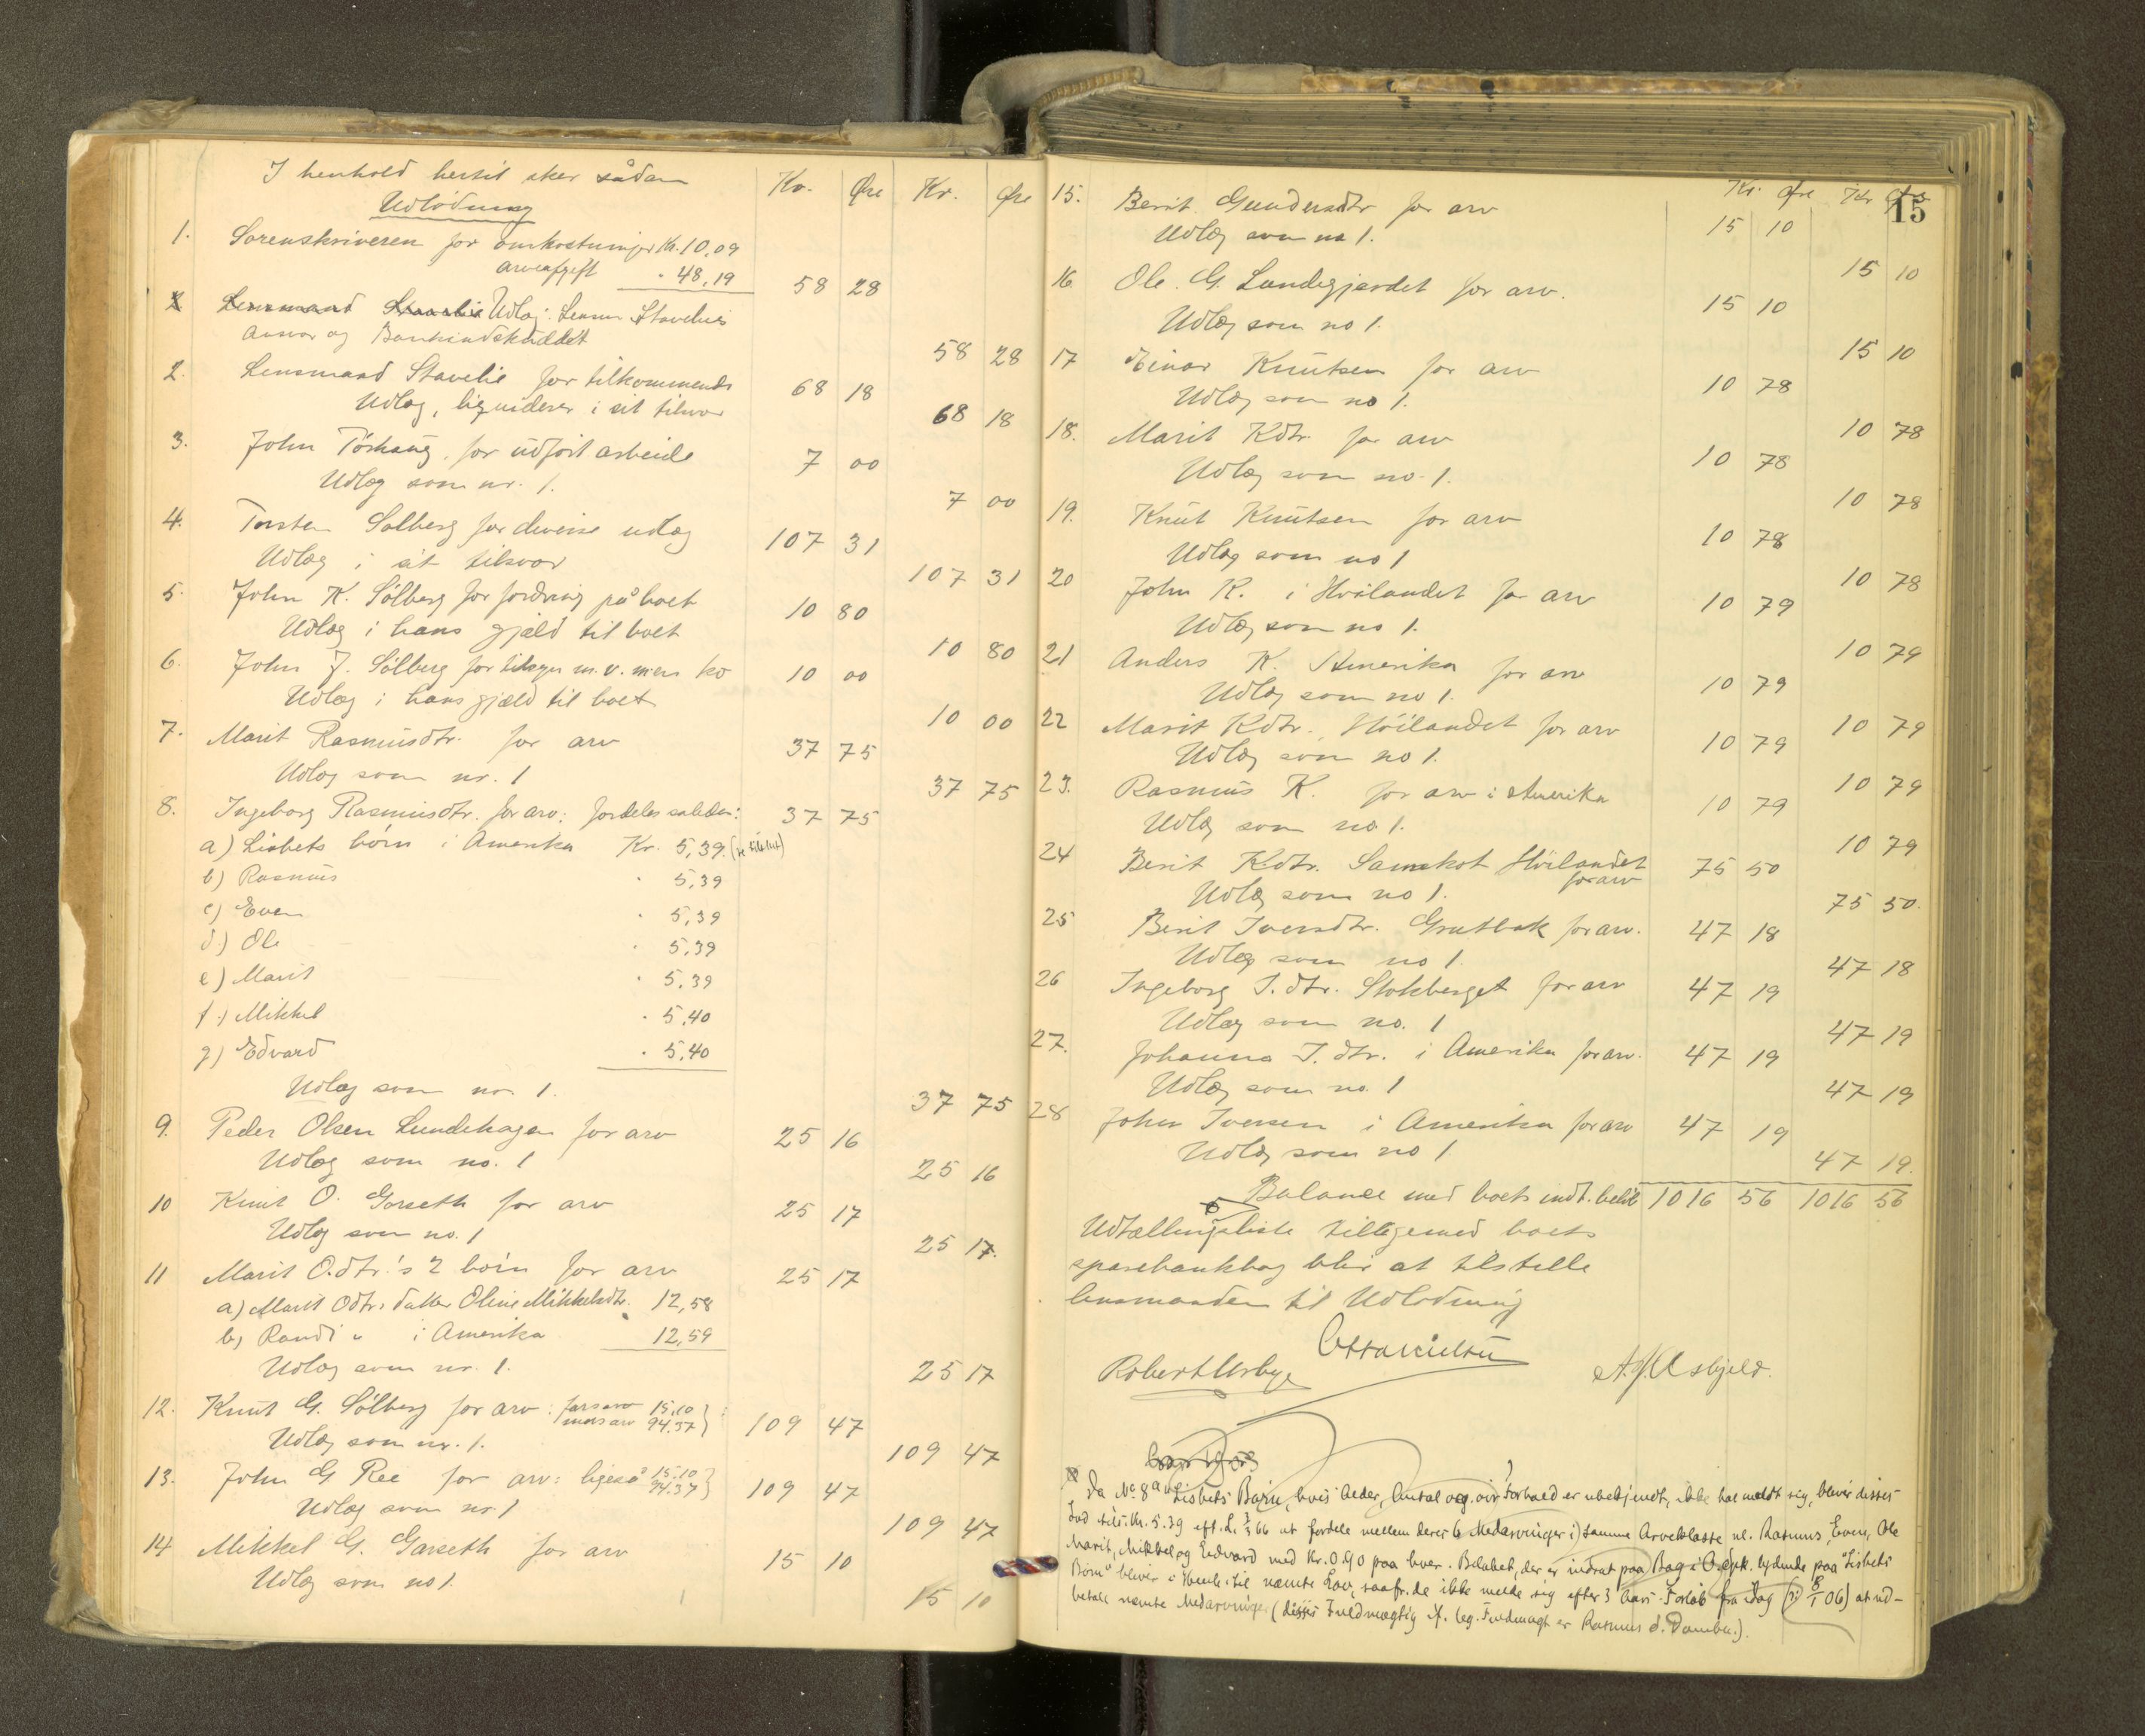 I henhold hertil sker sådan
Udlodning
Kr. Øre Kr. Øre
1. Sorenskriveren for omkostninger Kr. 10,09
arveafgift " 48,19 58 28
Lensmand Udlæg: Lensm Stavelies
ansvar og Bankindskuddet 58 28
2. Lensmand Stavelie for tilkommende 68 18
Udlæg, liquiderer i sit tilsvar 68 18
3. John Törhaug, for udført arbeide 7 00
Udlæg som nr. 1. 7 00
4. Torsten Solberg for diverse udlæg 107 31
Udlæg i sit tilsvar 107 31
5. John K. Sølberg for fordring på boet 10 80
Udlæg i hans gjæld til boet 10 80
6. John J. Sølberg for tilsyn m.v. m en ko 10 00
Udlæg i hans gjæld til boet 10 00
7. Marit Rasmusdtr. for arv 37 75
Udlæg som nr. 1 37 75
8. Ingeborg Rasmusdtr. for arv: fordeles saledes: 37 75
a) Lisbets børn i Amerika Kr. 5,39
b) Rasmus " 5,39
c) Even " 5,39
d) Ole " 5,39
e) Marit " 5,39
f) Mikkel " 5,40
g) Edvard " 5,40
Udlæg som nr. 1. 37 75
9. Peder Olsen Lundehagen for arv 25 16
Udlæg som no. 1 25 16
10 Knut O. Garseth for arv 25 17
Udlæg som no. 1 25 17.
11 Marit O.dtr.'s 2 børn for arv 25 17
a) Marit Odtrs datter Oline Mikkelsdtr. 12,58
b) Randi " i Amerika 12,59
Udlæg som nr. 1. 25 17
12. Knut G. Sølberg for arv: farsarv 15.10
morsarv 94.37 109 47
Udlæg som nr. 1. 109 47
13. John G Ree for arv: ligeså 15.10
94.37 109 47
Udlæg som nr. 1 109 47
14 Mikkel G. Garseth for arv 15 10
Udlæg som no 1. 15 10
15
Kr. Øre Kr Øre
15. Berit Gundersdtr for arv 15 10
Udlæg som no 1. 15 10
16 Ole G. Lundegjerdet for arv. 15 10
Udlæg som no 1. 15 10
17 Einar Knutsen for arv 10 78
Udlæg som no 1. 10 78
18. Marit Kdtr. for arv 10 78
Udlæg som no. 1. 10 78
19. Knut Knutsen for arv 10 78
Udlæg som no 1 10 78
20 John K. i Høilandet for arv 10 79
Udlæg som no 1. 10 79
21 Anders K. Amerika for arv 10 79
Udlæg som no 1. 10 79
22 Marit Kdtr., Høilandet for arv 10 79
Udlæg som no 1. 10 79
23. Rasmus K. for arv i Amerika 10 79
Udlæg som no 1. 10 79
24 Berit Kdtr. Høilandet
for arv 75 50
Udlæg som no 1. 75 50.
25 Berit Iversdtr. Grutbak for arv. 47 18
Udlæg som no 1. 47 18
26 Ingeborg I.dtr. Stokberget for arv 47 19
Udlæg som no. 1 47 19
27. Johanna I.dtr. i Amerika for arv. 47 19
Udlæg som no. 1 47 19
28 John Iversen i Amerika for arv 47 19
Udlæg som no 1 47 19.
Balance med boets indt. beløb 1016 56 1016 56
Udtællingsliste tilligemed boets
sparebankbog blir at tilstille
lensmanden til Udlodning
Robert Urbye
Da No. 8a Lisbets Børn, hvis Alder, Antal og Forhold er ubekjendt, ikke har meldt sig, bliver disses
Lod kr. 5.39 eft. L. 66 at fordele mellem deres 6 Medarvinger i samme Arveklasse nl. Rasmus, Even, Ole
Marit, Mikkel og Edvard med Kr. 0.90 paa hver. Beløbet, der er indsat paa Bog i lydende paa "Lisbets
Børn" bliver i Henh. til nævnte Lov, saafr. de ikke melde sig efter 3 Aars Forløb fra idag (06) at ud-
betale nævnte Medarvinger (disses Fuldmægtig er Rasmus